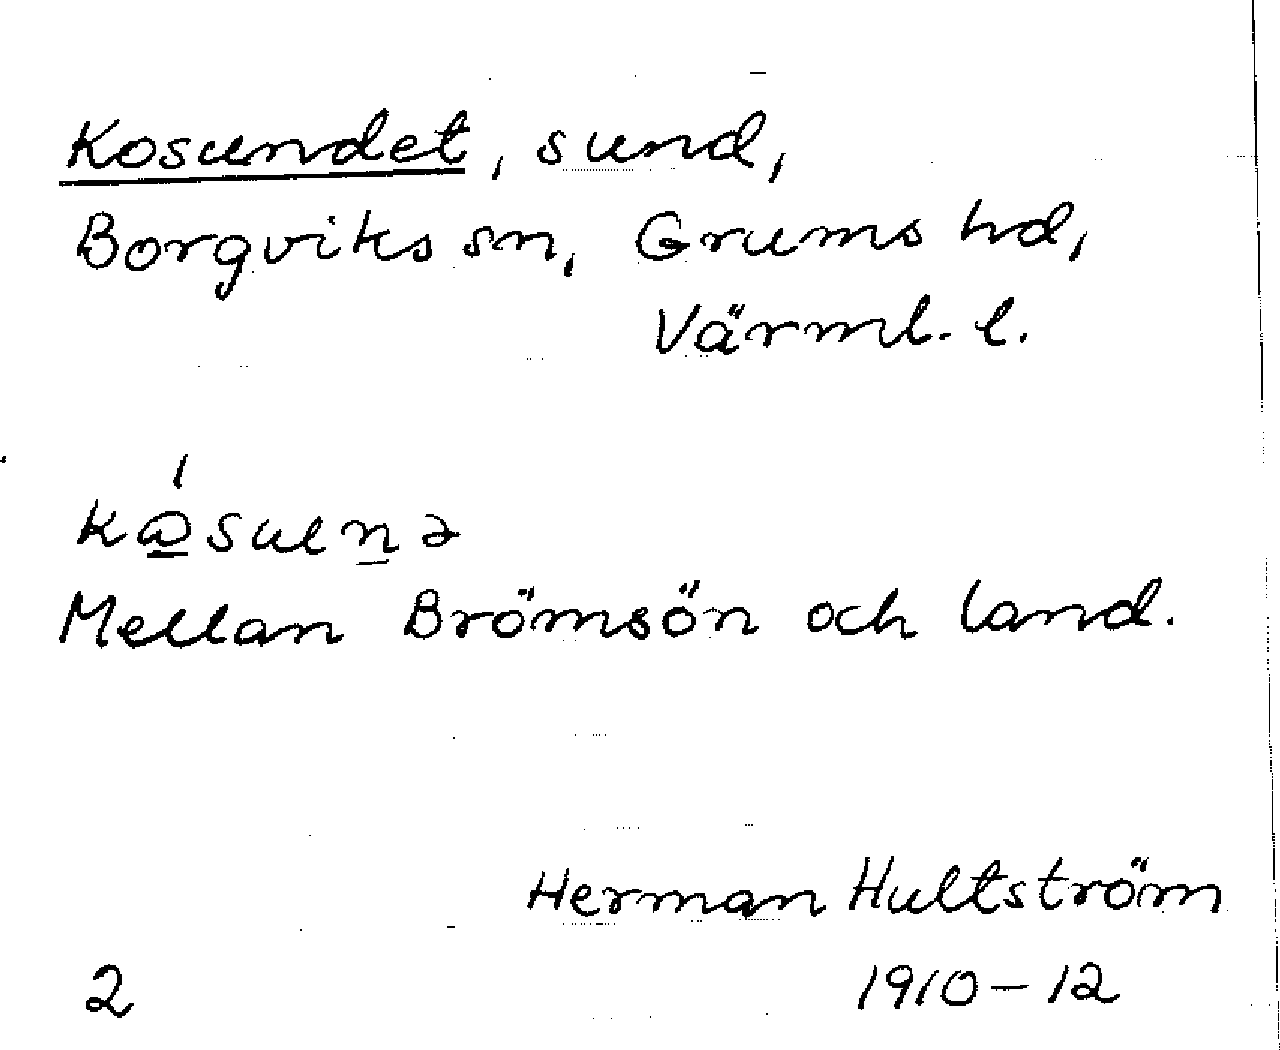 Kosundet, sund,
Borgviks sn, Grums hd,
Värml. l.
Mellan Brömsön och land.
Herman Hultström
2 1910-12